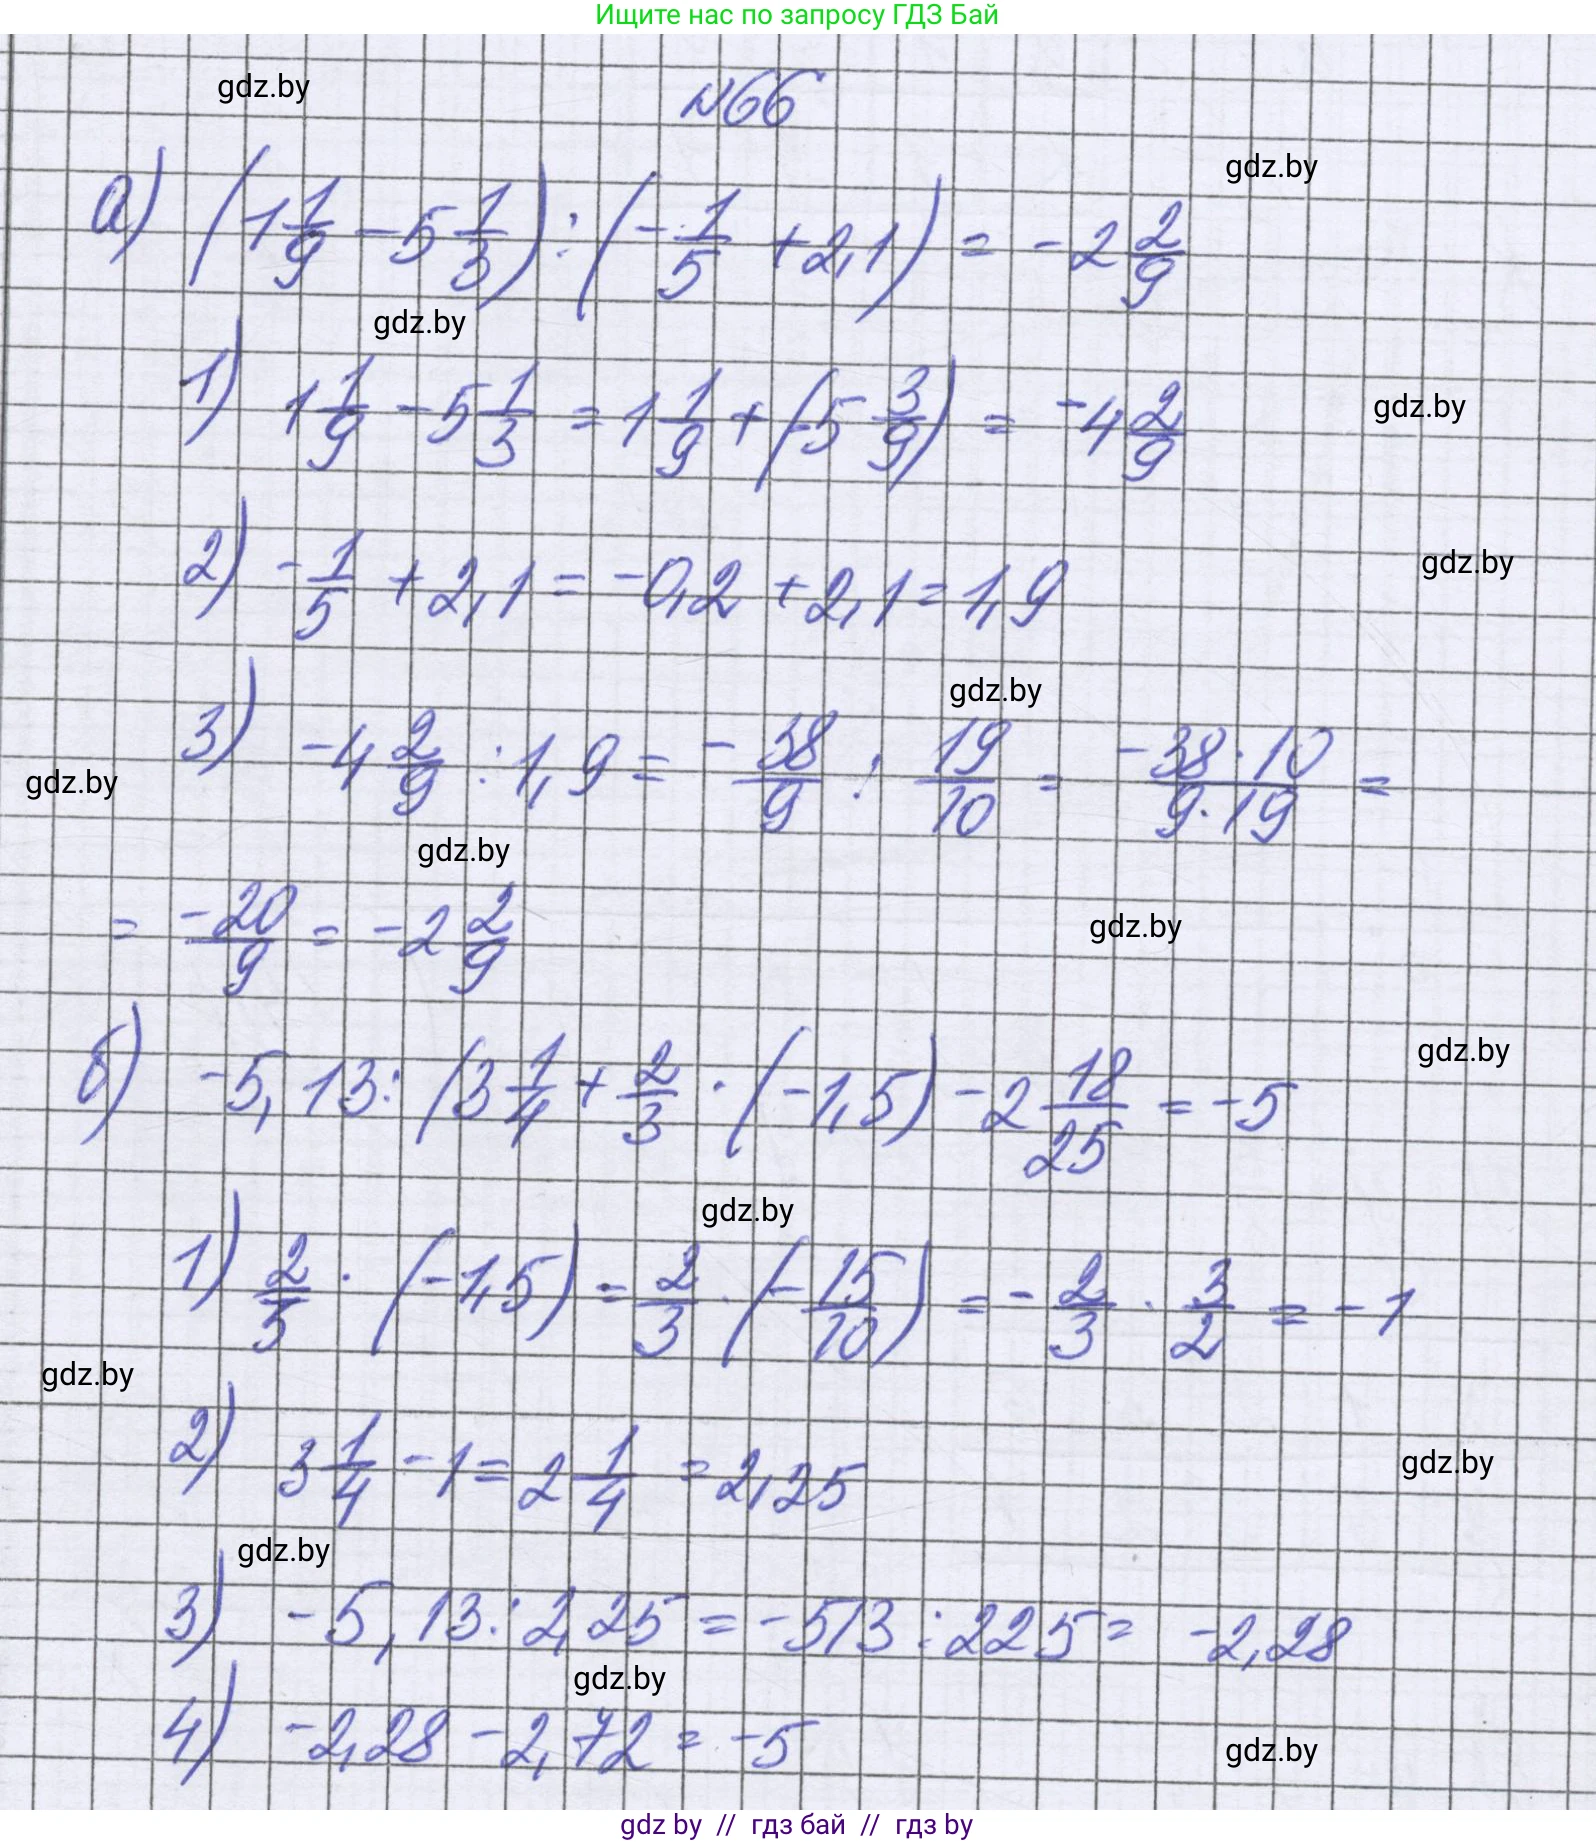 Ищите нас по запросу ГДЗ Бай
gdz.by
№66
gdz.by
а) (1 1/9 - 5 1/3) : (- 1/5 + 2,1) = -2 2/9
gdz.by
1) 1 1/9 - 5 1/3 = 1 1/9 + (-5 3/9) = -4 2/9
gdz.by
2) - 1/5 + 2,1 = -0,2 + 2,1 = 1,9
gdz.by
gdz.by
3) -4 2/9 : 1,9 = - 38/9 : 19/10 = -38·10/9·19 =
gdz.by
gdz.by
= -20/9 = -2 2/9
gdz.by
б) -5,13 : (3 1/4 + 2/3 · (-1,5) - 2 18/25 = -5
gdz.by
gdz.by
1) 2/3 · (-1,5) = 2/3 · (- 15/10) = - 2/3 · 3/2 = -1
gdz.by
2) 3 1/4 - 1 = 2 1/4 = 2,25
gdz.by
gdz.by
3) -5,13 : 2,25 = -513 : 225 = -2,28
gdz.by
4) -2,28 - 2,72 = -5
gdz.by
gdz by // гдз бай // гдз by